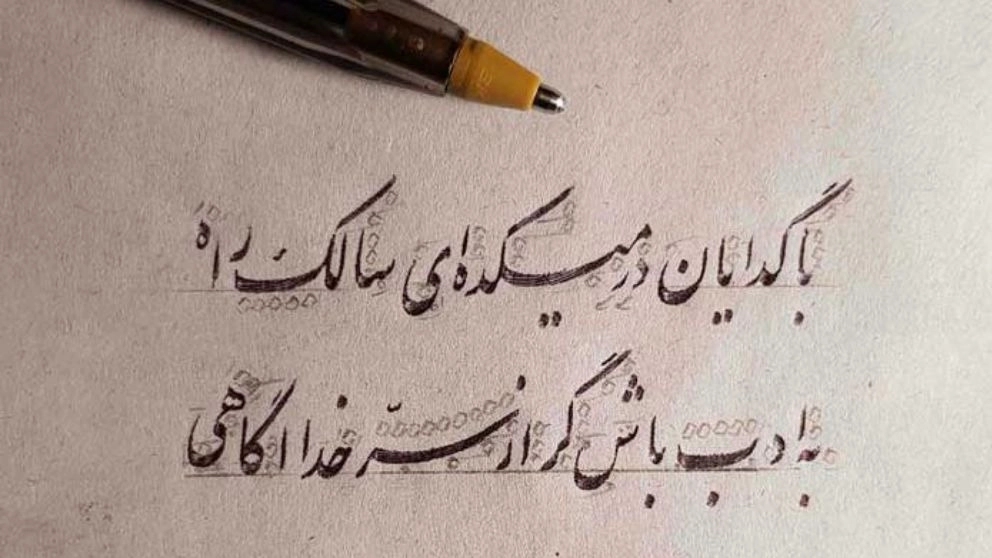 با گدایان در میکده ای سالک راه
با ادب باش گر از سرّ خدا آگاهی